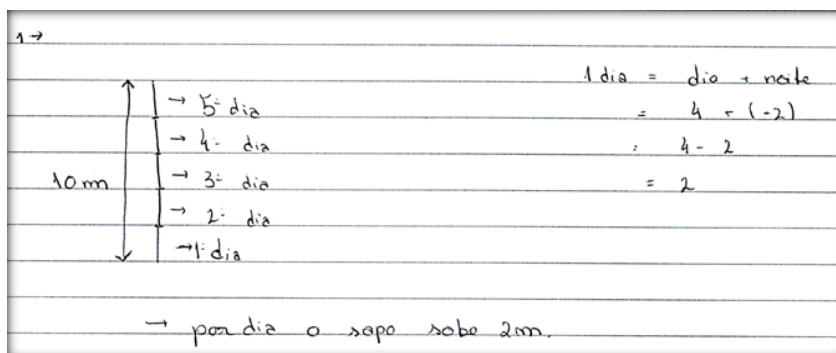 1→
10m
→ 5º dia
→ 4º dia
→ 3º dia
→ 2º dia
→ 1º dia
1 dia = dia + noite
= 4 + (-2)
= 4 - 2
= 2
→ por dia o sapo sobe 2m.